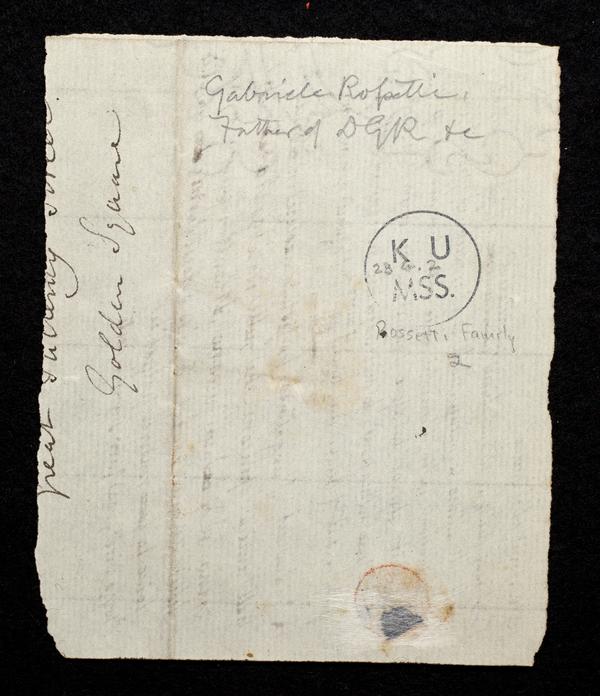 Gabriele Rossetti.
Father of DGR &c
K U
28 G. 2
MSS.
Rossetti Family
2
great Pulteney Street
Golden Square